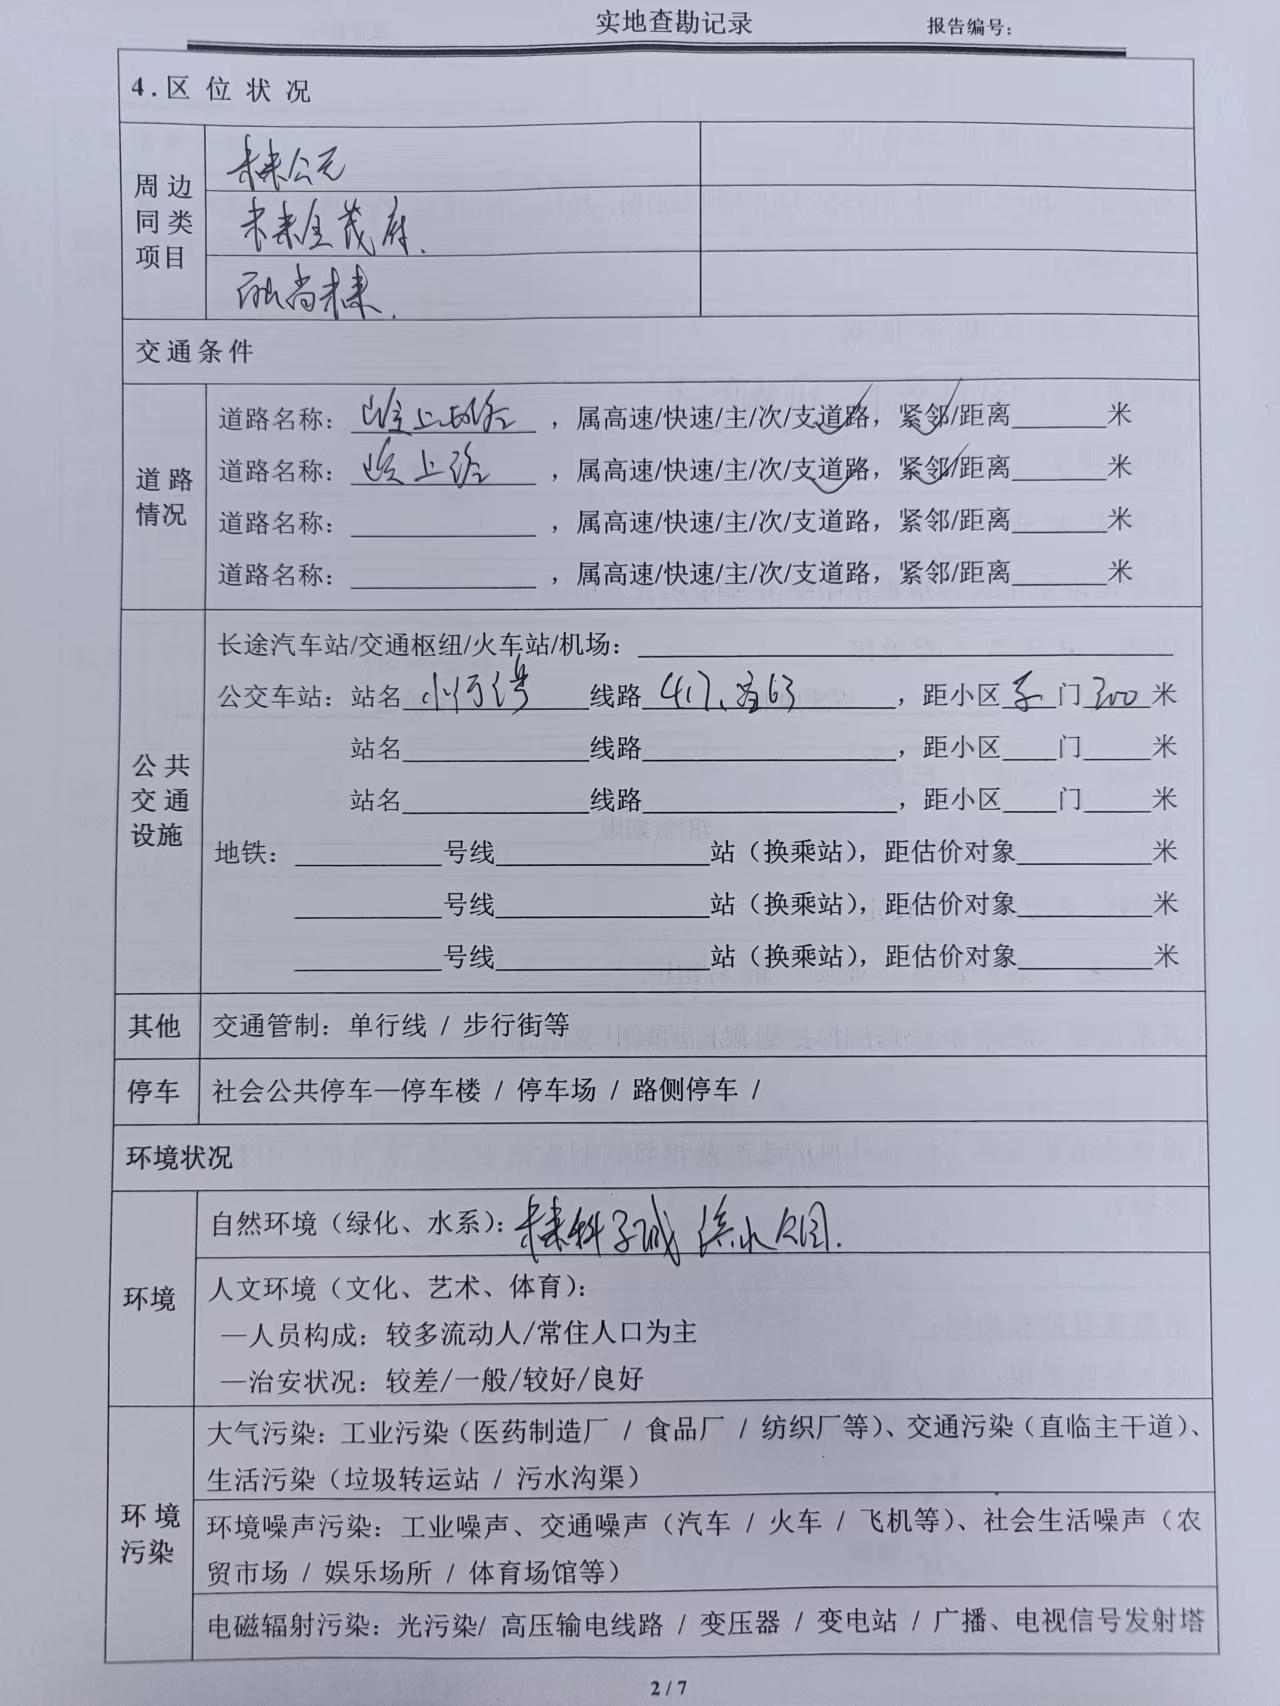 实地查勘记录
报告编号：
4.区位状况
周边同类项目
未来公元
未来金茂府.
尚未来.
交通条件
道路情况
道路名称：上路，属高速/快速/主/次/支道路，紧邻/距离______米
道路名称：上路，属高速/快速/主/次/支道路，紧邻/距离______米
道路名称：______，属高速/快速/主/次/支道路，紧邻/距离______米
道路名称：______，属高速/快速/主/次/支道路，紧邻/距离______米
公共交通设施
长途汽车站/交通枢纽/火车站/机场：______
公交车站：站名 线路 417、 63，距小区 门 300 米
站名______线路______，距小区____门____米
站名______线路______，距小区____门____米
地铁：______号线______站（换乘站），距估价对象______米
______号线______站（换乘站），距估价对象______米
______号线______站（换乘站），距估价对象______米
其他
交通管制：单行线 / 步行街等
停车
社会公共停车—停车楼 / 停车场 / 路侧停车 /
环境状况
环境
自然环境（绿化、水系）：未来科学城滨水公园.
人文环境（文化、艺术、体育）：
—人员构成：较多流动人/常住人口为主
—治安状况：较差/一般/较好/良好
环境污染
大气污染：工业污染（医药制造厂 / 食品厂 / 纺织厂等）、交通污染（直临主干道）、
生活污染（垃圾转运站 / 污水沟渠）
环境噪声污染：工业噪声、交通噪声（汽车 / 火车 / 飞机等）、社会生活噪声（农
贸市场 / 娱乐场所 / 体育场馆等）
电磁辐射污染：光污染/ 高压输电线路 / 变压器 / 变电站 / 广播、电视信号发射塔
2 / 7